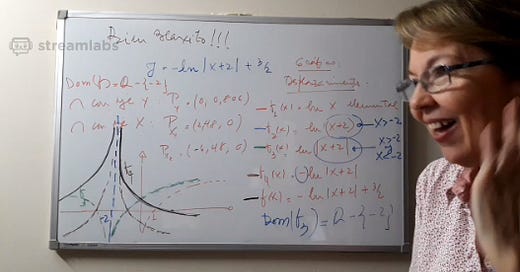 streamlabs
Bien Blaxito!!!
y = -ln|x+2| + 3/2
Dom(f) = R - {-2}
∩ con eje Y: Py = (0, 0,806)
∩ con eje X: Px₁ (2,48, 0)
Px₂ = (-6,48, 0)
Grafico
Desplazamiento
f₁(x) = ln x elemental
f₂(x) = ln(x+2) x>-2
f₃(x) = ln|x+2| x>-2 y x<-2
f₄(x) = -ln|x+2|
f(x) = -ln|x+2| + 3/2
Dom(f₃) = R - {-2}
-2
1